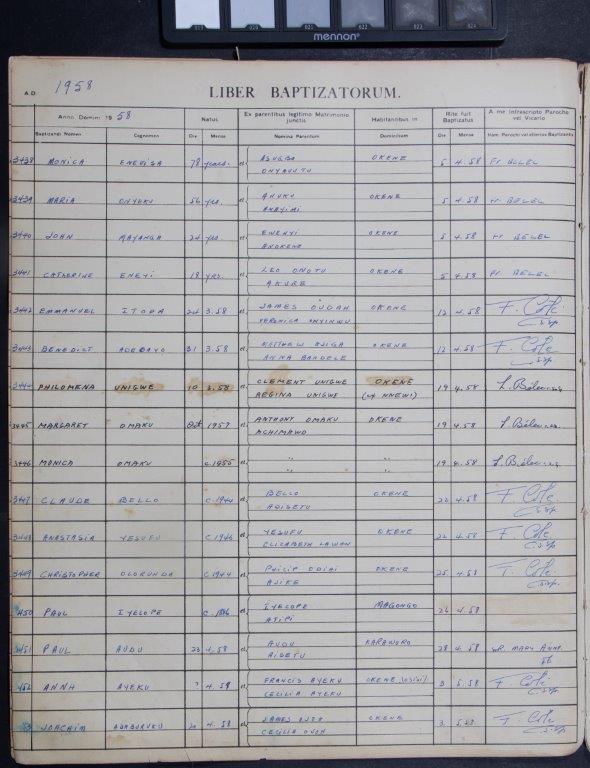 mennon
A.D. 1958 LIBER BAPTIZATORUM.
Anno Domini 1958 Natus Ex parentibus legitimo Matrimonio junctis Habitantibus in Rite fuit Baptizatus A me infrascripto Parocho vel Vicario
Baptizandi Nomen Cognomen Die Mense Nomina Parentum Domicilium Die Mense Nom. Parochi vel alterius Baptizantis
3438 MONICA ENEVISA 78 years. OKENE 5 4.58 Fr BELEL
3439 MARIA ONYEKU 56 yrs. OKENE 5 4.58 Fr BELEL
3440 JOHN 24 yrs OKENE 5 4.58 Fr BELEL
3441 CATHERINE ENEYI 18 yrs. LEO ONOTU OKENE 5 4.58 Fr BELEL
AKURE
3442 EMMANUEL ITODA 24 3.58 JAMES OUDAH OKENE 12 4.58 F. Cole
VERONICA
3443 BENEDICT ADEBAYO 31 3.58 MATTHEW OKENE 12 4.58 F. Cole
ANNA BANDELE
3444 PHILOMENA UNIGWE 10 3.58 CLEMENT UNIGWE OKENE 19 4.58
REGINA UNIGWE (of NNEWI)
3445 MARGARET OMAKU Oct 1957 ANTHONY OMAKU OKENE 19 4.58
ACHIMAWO
3446 MONICA OMAKU c.1955 " " 19 4.58
3447 CLAUDE BELLO c.1944 BELLO OKENE 22 4.58 F. Cole
ADISETU
3448 ANASTASIA YESUFU c.1946 YESUFU OKENE 22 4.58 F. Cole
ELIZABETH LAWAN
3449 CHRISTOPHER OLORUNDA c.1944 PHILIP OKENE 25 4.58 F. Cole
AJIKE
3450 PAUL IYELOPE IYELOPE MAGONGO 26 4.58
ATIPI
3451 PAUL AUDU 23 4.58 AUDU KARAWORO 28 4.58 SR. MARY ANNE
AISETU
3452 ANNA AYEKU ? 4.58 FRANCIS AYEKU OKENE 3 5.58 F. Cole
CECILIA AYEKU
JOACHIM 4.58 JAMES OKENE 3 5.58 F. Cole
CECILIA